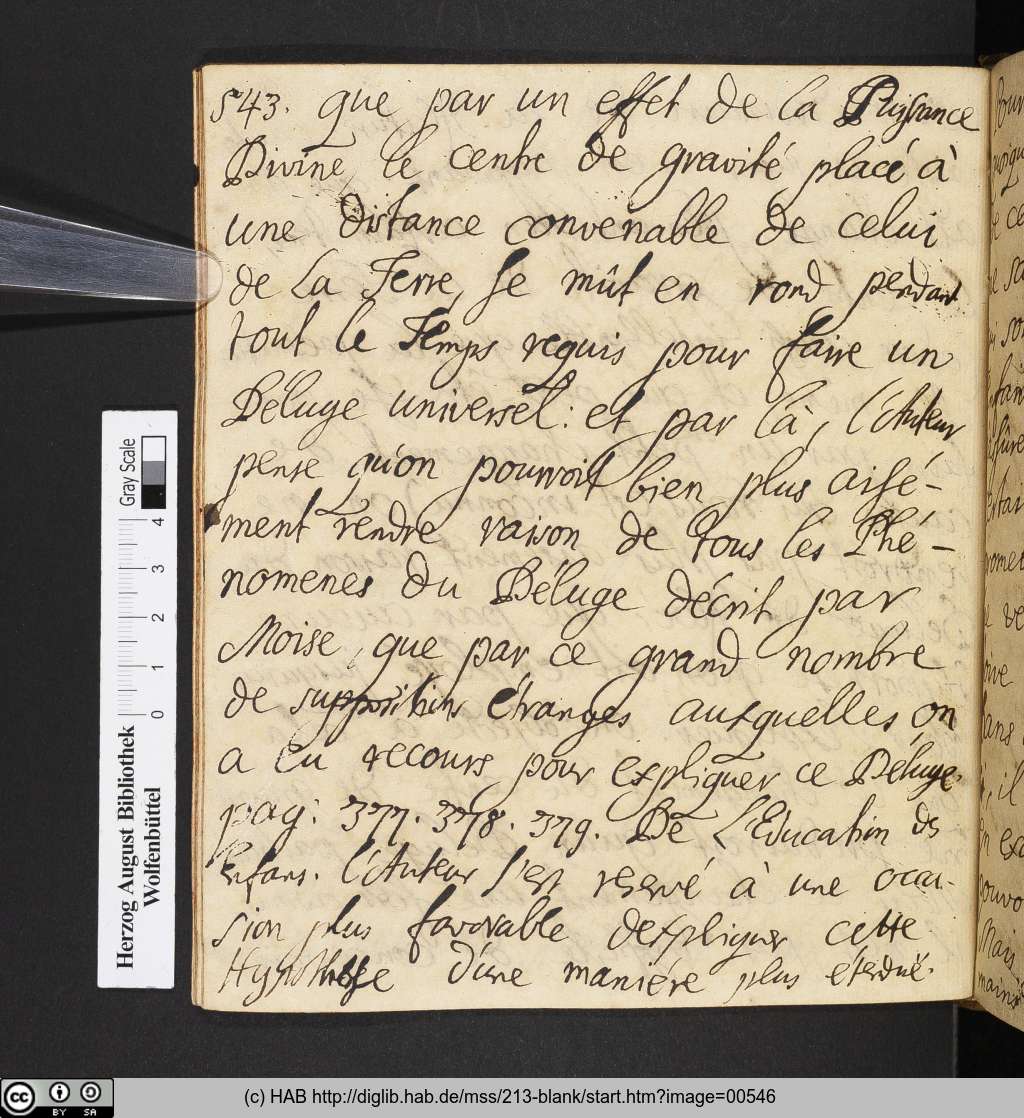 543. que par un effet de la Puissance
Divine, le centre de gravité placé à
une distance convenable de celui
de La Terre, se mût en rond pendant
tout le Temps requis pour faire un
Déluge universel: et par là, l'Auteur
pense qu'on pourroit bien plus aisé-
ment rendre raison de tous les Phé-
nomenes du Déluge décrit par
Moise, que par ce grand nombre
de suppositions étranges auxquelles on
a eu recours pour expliquer ce Déluge.
pag: 377. 378. 379. De L'Education des
Enfans. L'Auteur s'est reservé à une occa-
sion plus favorable d'expliquer cette
Hypothese d'une maniére plus étenduë.
Herzog August Bibliothek
Wolfenbüttel
0 1 2 3 4
Gray Scale
cc BY SA
(c) HAB http://diglib.hab.de/mss/213-blank/start.htm?image=00546